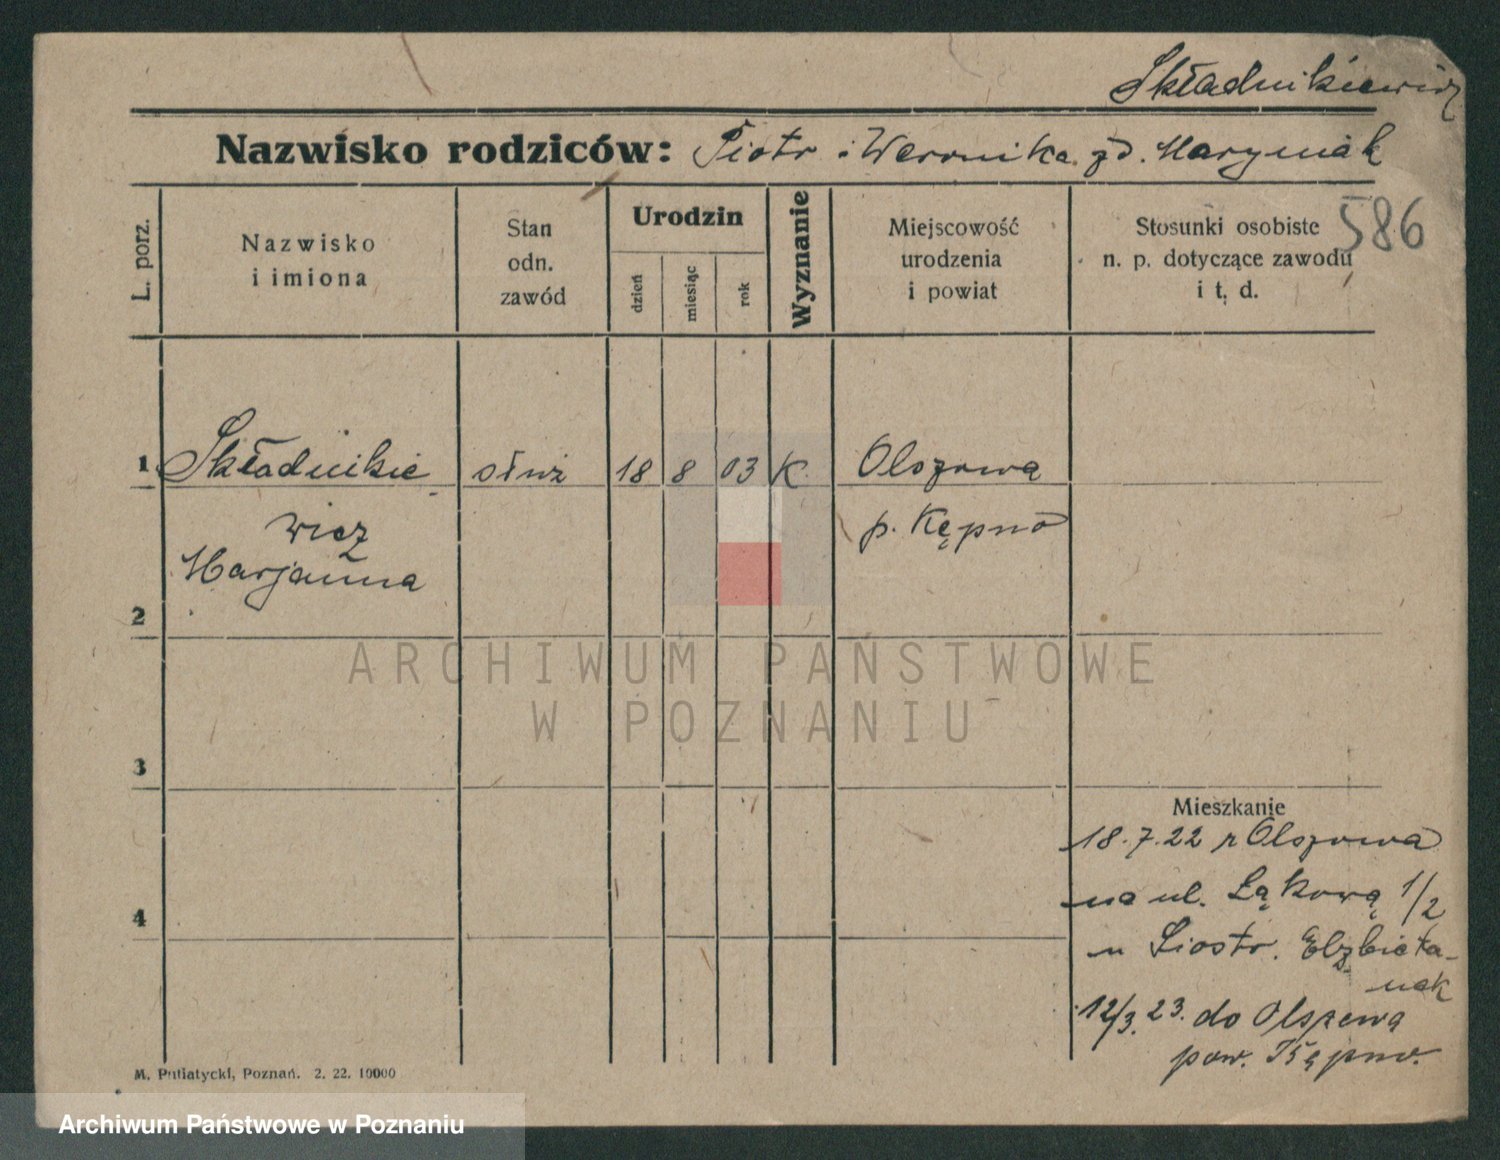 Składnikiewicz
Nazwisko rodziców: Piotr i Weronika zd. Maryniak
586
L. porz.
Nazwisko
i imiona
Stan
odn.
zawód
Urodzin
dzień
miesiąc
rok
Wyznanie
Miejscowość
urodzenia
i powiat
Stosunki osobiste
n. p. dotyczące zawodu
i t. d.
1 Składnikie- służ 18 8 03 K Olszowa
wicz p. Kępno
Marjanna
2
ARCHIWUM PAŃSTWOWE
W POZNANIU
3
Mieszkanie
18.7.22 z Olszowa
na ul. Łąkową 1/2
4
u Siostr. Elzbieta-
nek
12/3.23. do Olszewa
pow. Kępno.
M. Putiatycki, Poznań. 2. 22. 10000
Archiwum Państwowe w Poznaniu